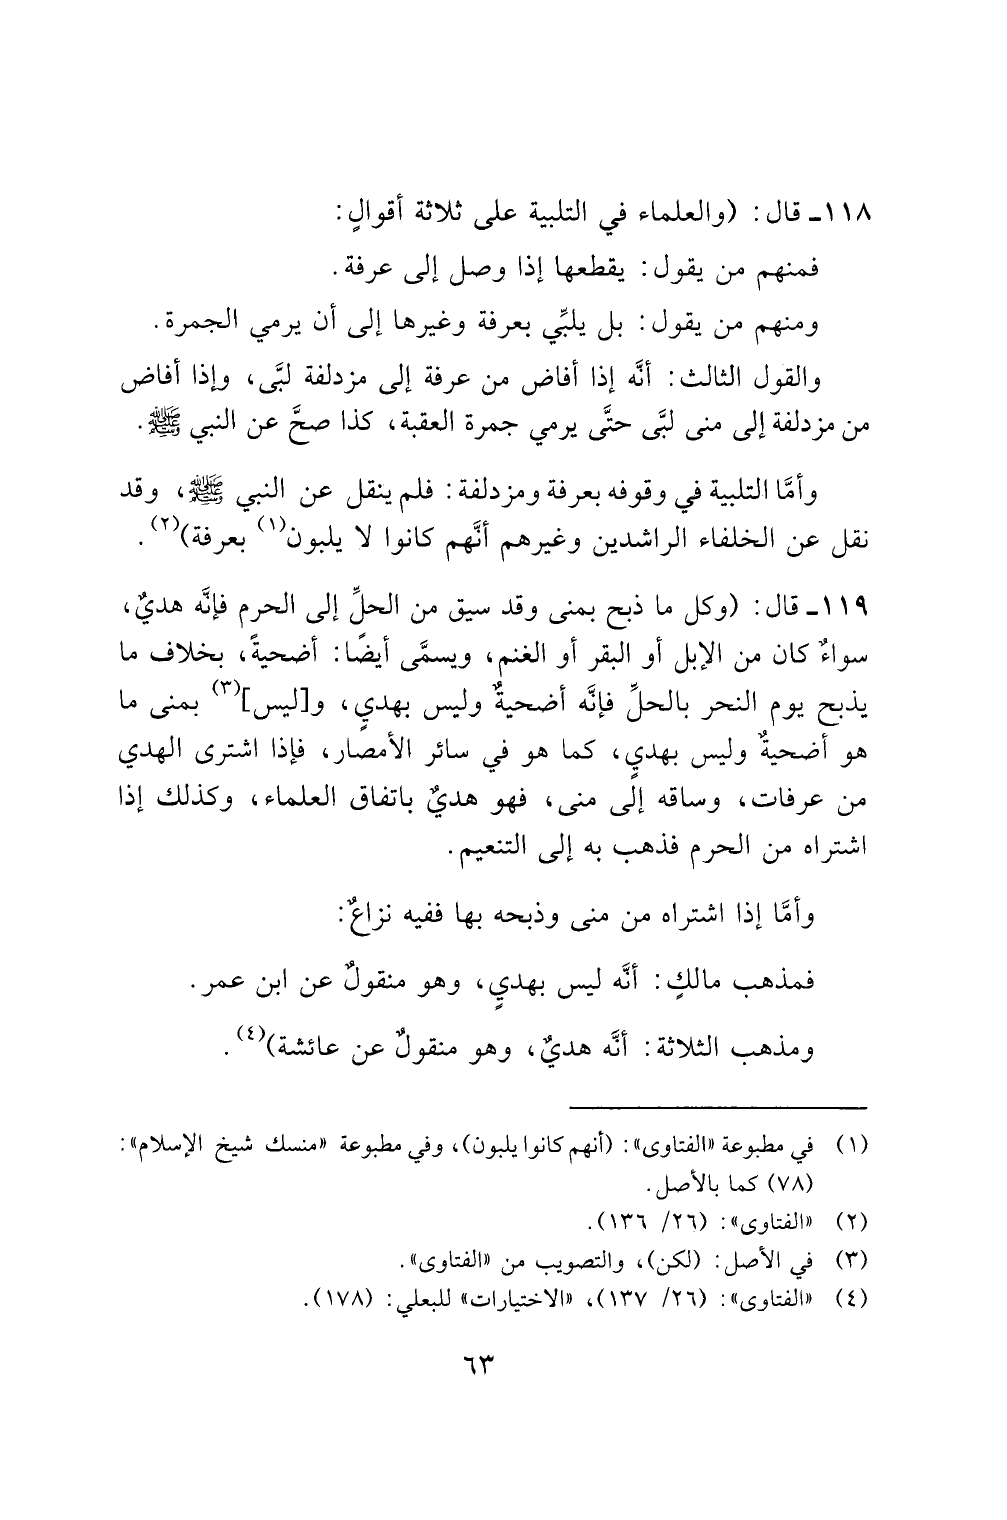 ١١٨ـ قال: (والعلماء في التلبية على ثلاثة أقوالٍ:
فمنهم من يقول: يقطعها إذا وصل إلى عرفة.
ومنهم من يقول: بل يلبِّي بعرفة وغيرها إلى أن يرمي الجمرة.
والقول الثالث: أنَّه إذا أفاض من عرفة إلى مزدلفة لبَّى، وإذا أفاض
من مزدلفة إلى منى لبَّى حتَّى يرمي جمرة العقبة، كذا صحَّ عن النبي ﷺ.
وأمَّا التلبية في وقوفه بعرفة ومزدلفة: فلم ينقل عن النبي ﷺ، وقد
نقل عن الخلفاء الراشدين وغيرهم أنَّهم كانوا لا يلبون(١) بعرفة)(٢).
١١٩ـ قال: (وكل ما ذبح بمنى وقد سيق من الحلِّ إلى الحرم فإنَّه هديٌ،
سواءٌ كان من الإبل أو البقر أو الغنم، ويسمَّى أيضًا: أضحيةً، بخلاف ما
يذبح يوم النحر بالحلِّ فإنَّه أضحيةٌ وليس بهديٍ، و[ليس](٣) بمنى ما
هو أضحيةٌ وليس بهديٍ، كما هو في سائر الأمصار، فإذا اشترى الهدي
من عرفات، وساقه إلى منى، فهو هديٌ باتفاق العلماء، وكذلك إذا
اشتراه من الحرم فذهب به إلى التنعيم.
وأمَّا إذا اشتراه من منى وذبحه بها ففيه نزاعٌ:
فمذهب مالكٍ: أنَّه ليس بهديٍ، وهو منقولٌ عن ابن عمر.
ومذهب الثلاثة: أنَّه هديٌ، وهو منقولٌ عن عائشة)(٤).
(١) في مطبوعة «الفتاوى»: (أنهم كانوا يلبون)، وفي مطبوعة «منسك شيخ الإسلام»:
(٧٨) كما بالأصل.
(٢) «الفتاوى»: (٢٦/ ١٣٦).
(٣) في الأصل: (لكن)، والتصويب من «الفتاوى».
(٤) «الفتاوى»: (٢٦/ ١٣٧)، «الاختيارات» للبعلي: (١٧٨).
٦٣